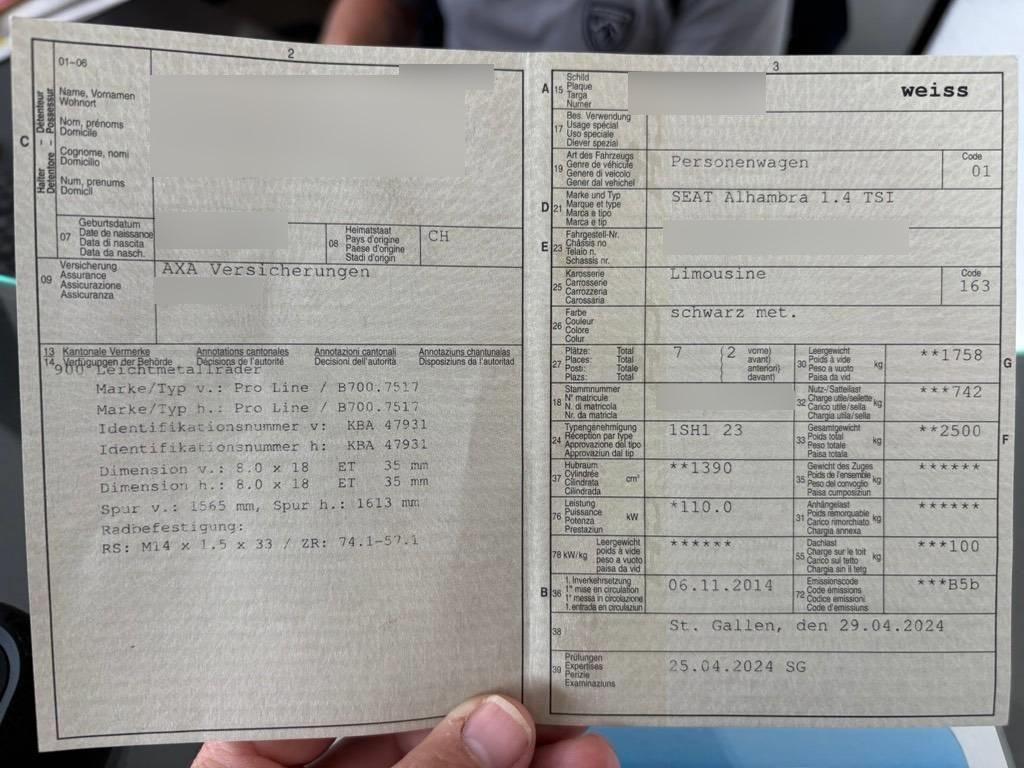 2
01–06
Name, Vornamen
Wohnort
Nom, prénoms
Domicile
Cognome, nomi
Domicilio
Num, prenums
Domicil
C
Halter – Détenteur
Detentore – Possessur
07
Geburtsdatum
Date de naissance
Data di nascita
Data da nasch.
08
Heimatstaat
Pays d'origine
Paese d'origine
Stadi d'origin
CH
09
Versicherung
Assurance
Assicurazione
Assicuranza
AXA Versicherungen
13 Kantonale Vermerke Annotations cantonales Annotazioni cantonali Annotaziuns chantunalas
14 Verfügungen der Behörde Décisions de l'autorité Decisioni dell'autorità Disposiziuns da l'autoritad
900 Leichtmetallräder
Marke/Typ v.: Pro Line / B700.7517
Marke/Typ h.: Pro Line / B700.7517
Identifikationsnummer v: KBA 47931
Identifikationsnummer h: KBA 47931
Dimension v.: 8.0 x 18 ET 35 mm
Dimension h.: 8.0 x 18 ET 35 mm
Spur v.: 1565 mm, Spur h.: 1613 mm
Radbefestigung:
RS: M14 x 1.5 x 33 / ZR: 74.1-57.1
3
A 15
Schild
Plaque
Targa
Numer
weiss
17
Bes. Verwendung
Usage spécial
Uso speciale
Diever spezial
19
Art des Fahrzeugs
Genre de véhicule
Genere di veicolo
Gener dal vehichel
Personenwagen
Code
01
D 21
Marke und Typ
Marque et type
Marca e tipo
Marca e tip
SEAT Alhambra 1.4 TSI
E 23
Fahrgestell-Nr.
Châssis no
Telaio n.
Schassis nr.
25
Karosserie
Carrosserie
Carrozzeria
Carossaria
Limousine
Code
163
26
Farbe
Couleur
Colore
Colur
schwarz met.
27
Plätze: Total
Places: Total
Posti: Totale
Plazs: Total
7
(2
vorne)
avant)
anteriori)
davant)
30
Leergewicht
Poids à vide
Peso a vuoto
Paisa da vid
kg
**1758
G
18
Stammnummer
N° matricule
N. di matricola
Nr. da matricla
32
Nutz-/Sattellast
Charge utile/sellette
Carico utile/sella
Chargia utila/sella
kg
***742
24
Typengenehmigung
Réception par type
Approvazione del tipo
Approvaziun dal tip
1SH1 23
33
Gesamtgewicht
Poids total
Peso totale
Paisa totala
kg
**2500
F
37
Hubraum
Cylindrée
Cilindrata
Cilindrada
cm³
**1390
35
Gewicht des Zuges
Poids de l'ensemble
Peso del convoglio
Paisa cumposiziun
kg
******
76
Leistung
Puissance
Potenza
Prestaziun
kW
*110.0
31
Anhängelast
Poids remorquable
Carico rimorchiato
Chargia annexa
kg
******
78 kW/kg
Leergewicht
poids à vide
peso a vuoto
paisa da vid
******
55
Dachlast
Charge sur le toit
Carico sul tetto
Chargia sin il tetg
kg
***100
B 36
1. Inverkehrsetzung
1re mise en circulation
1a messa in circolazione
1. entrada en circulaziun
06.11.2014
72
Emissionscode
Code émissions
Codice emissioni
Code d'emissiuns
***B5b
38
St. Gallen, den 29.04.2024
39
Prüfungen
Expertises
Perizie
Examinaziuns
25.04.2024 SG